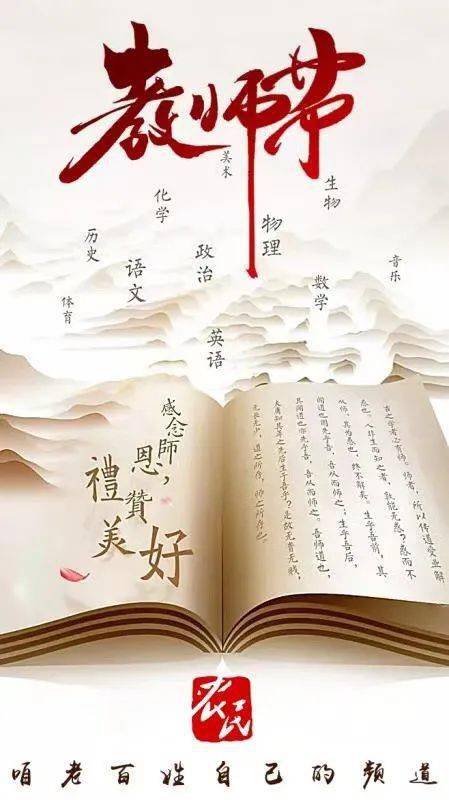 教师节
美术
生物
化学
物理
历史
政治
语文
音乐
数学
体育
英语
感念師
恩，
禮贊
美好
古之学者必有师。师者，所以传道受业解
惑也。人非生而知之者，孰能无惑？惑而不
从师，其为惑也，终不解矣。生乎吾前，其
闻道也固先乎吾，吾从而师之；生乎吾后，
其闻道也亦先乎吾，吾从而师之。吾师道也，
夫庸知其年之先后生于吾乎？是故无贵无贱，
无长无少，道之所存，师之所存也。
农民
咱老百姓自己的频道